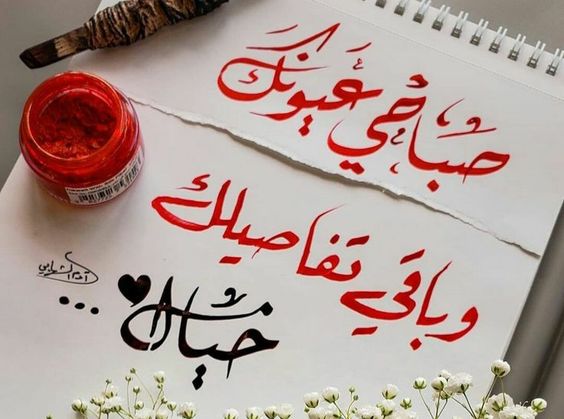 صباحي عيونك
وباقي تفاصيلك
خيال